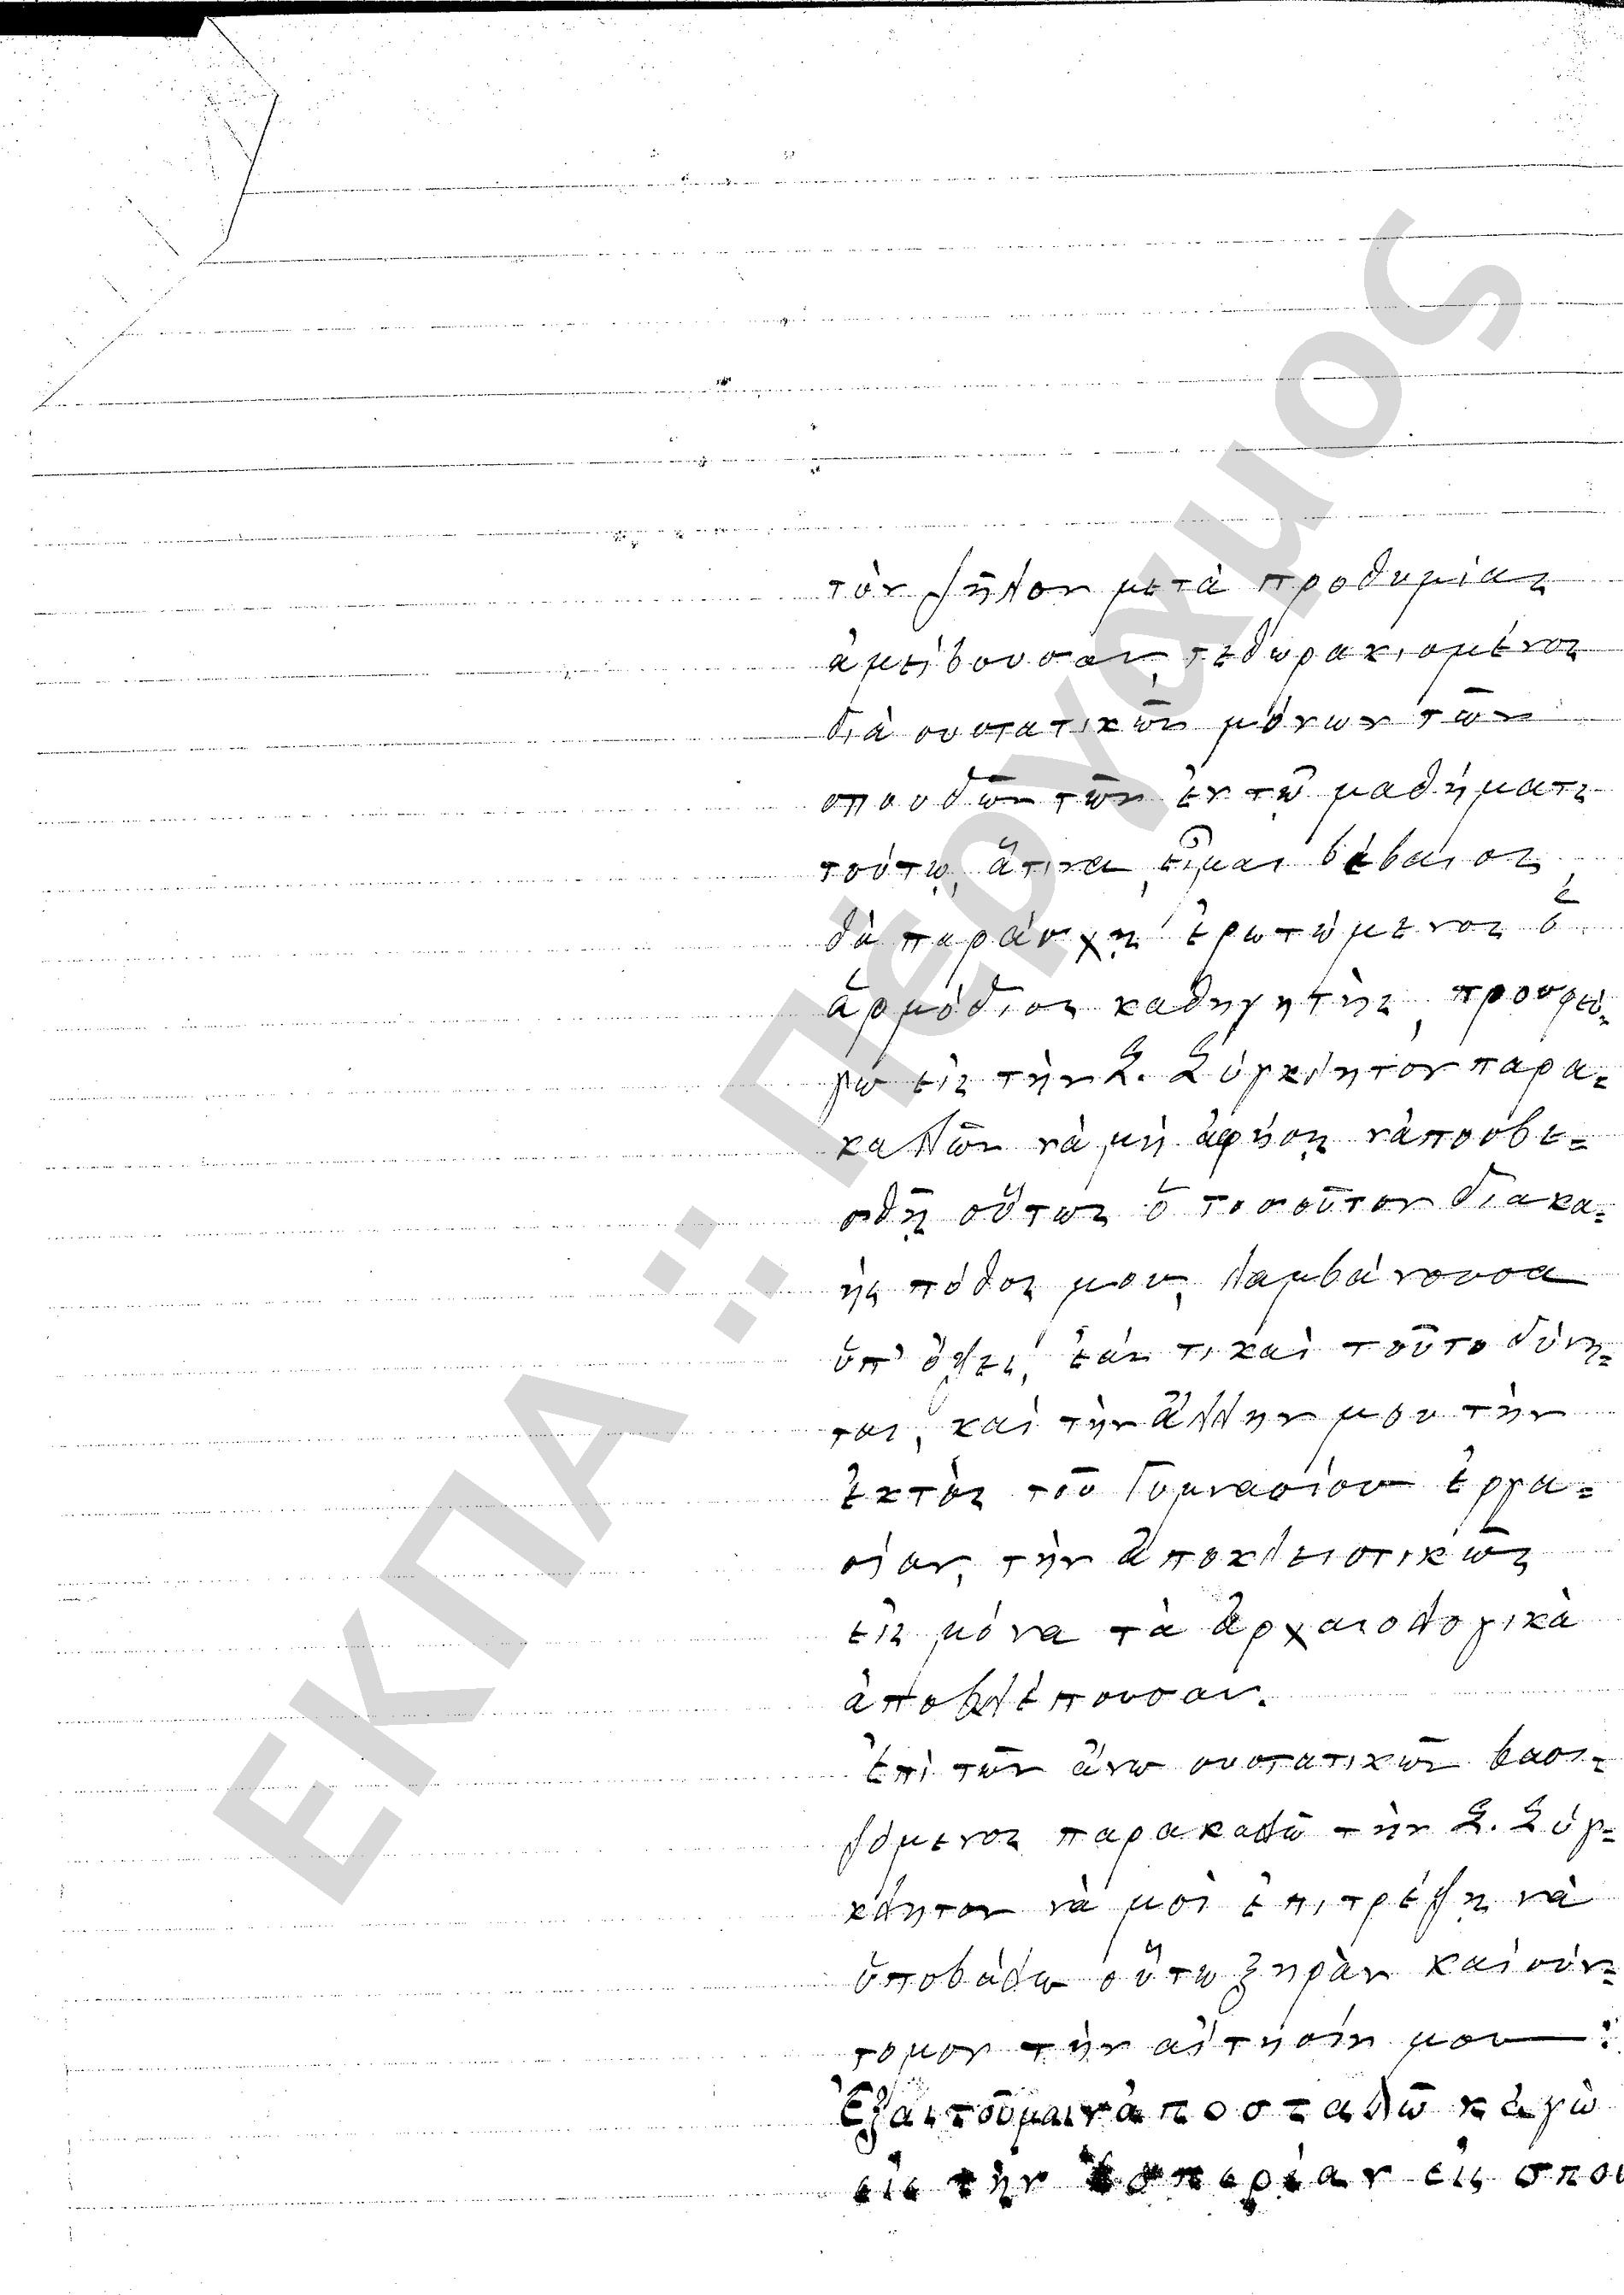 τὸν ζῆλον μετὰ προθυμίας
ἀμείβουσαν, τεθωρακισμένος
διὰ συστατικῶν μόνων τῶν
σπουδῶν τῶν ἐν τῷ μαθήματι
τούτῳ, ἅτινα, εἶμαι βέβαιος
θὰ παράσχῃ ἐρωτώμενος ὁ
ἁρμόδιος καθηγητὴς, προσφεύ-
γω εἰς τὴν Σ. Σύγκλητον παρα-
καλῶν νὰ μὴ ἀφήσῃ νἀποσβε-
σθῇ οὕτως ὁ τοσοῦτον διακα-
ὴς πόθος μου, λαμβάνουσα
ὑπ' ὄψει, ἐάν τι καὶ τοῦτο δύνη-
ται, καὶ τὴν ἄλλην μου τὴν
ἐκτὸς τοῦ Γυμνασίου ἐργα-
σίαν, τὴν ἀποκλειστικῶς
εἰς μόνα τὰ ἀρχαιολογικὰ
ἀποβλέπουσαν.
Ἐπὶ τῶν ἄνω συστατικῶν βασι-
ζόμενος παρακαλῶ τὴν Σ. Σύγ-
κλητον νὰ μοὶ ἐπιτρέψῃ νὰ
ὑποβάλω οὕτω ξηρὰν καὶ σύν-
τομον τὴν αἴτησίν μου:
Ἐξαιτοῦμαι νἀποσταλῶ κἀγὼ
εἰς τὴν Ἑσπερίαν εἰς σπου
ΕΚΠΑ :: Πέργαμος